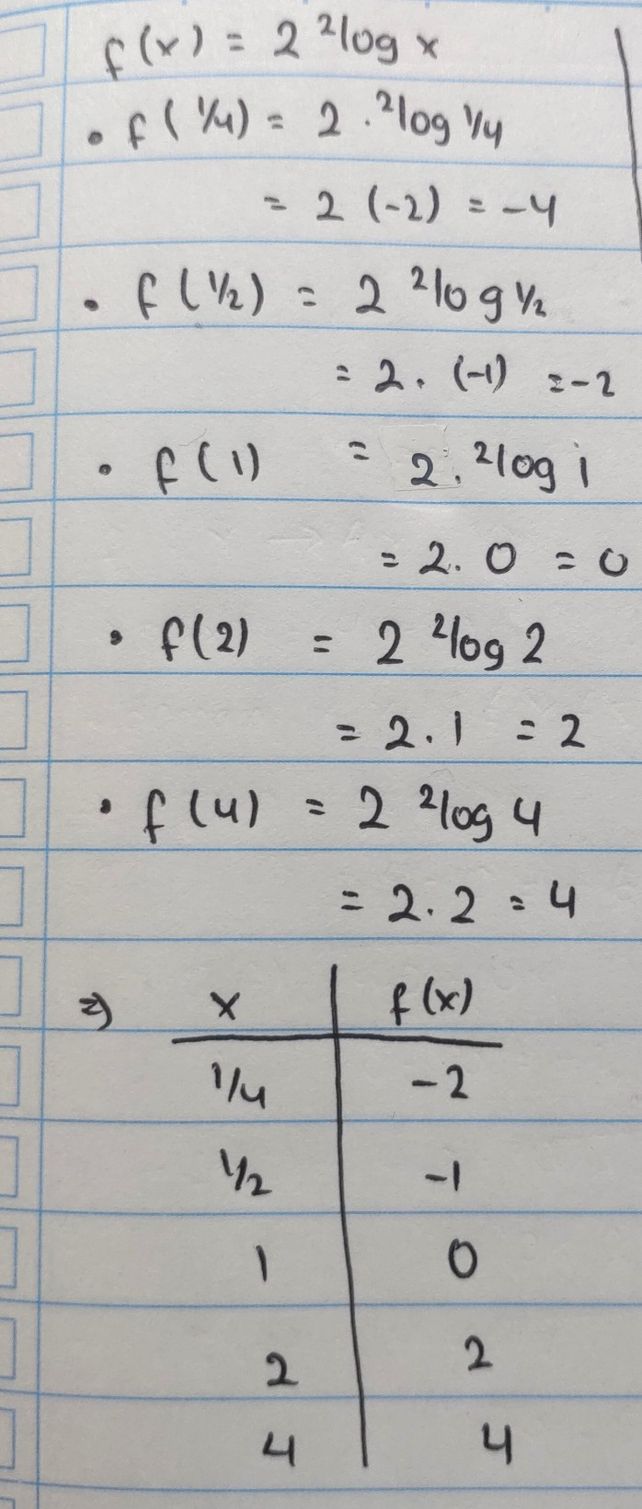 f(x) = 2 ²log x
• f(1/4) = 2 . ²log 1/4
= 2 (-2) = -4
• f(1/2) = 2 ²log 1/2
= 2 . (-1) = -2
• f(1) = 2 . ²log 1
= 2 . 0 = 0
• f(2) = 2 ²log 2
= 2 . 1 = 2
• f(4) = 2 ²log 4
= 2 . 2 = 4
⇒ x | f(x)
1/4 | -2
1/2 | -1
1 | 0
2 | 2
4 | 4